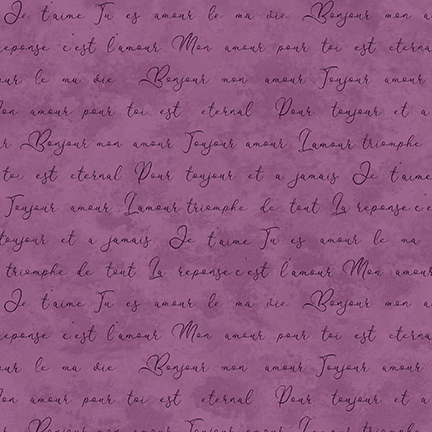 Je t'aime Tu es amour le ma vie Bonjour mon a
reponse c'est l'amour Mon amour pour toi est eterna
ur le ma vie Bonjour mon amour Toujour amour
on amour pour toi est eternal Pour toujour et a
r Bonjour mon amour Toujour amour Lamour triomphe
toi est eternal Pour toujour et a jamais Je t'aime
Toujour amour Lamour triomphe de tout La reponse c'e
toujour et a jamais Je t'aime Tu es amour le ma
triomphe de tout La reponse c'est l'amour Mon amour
Je t'aime Tu es amour le ma vie Bonjour mon a
eponse c'est l'amour Mon amour pour toi est eterna
ur le ma vie Bonjour mon amour Toujour amour
on amour pour toi est eternal Pour toujour et a
r Bonjour mon amour Toujour amour Lamour triomphe